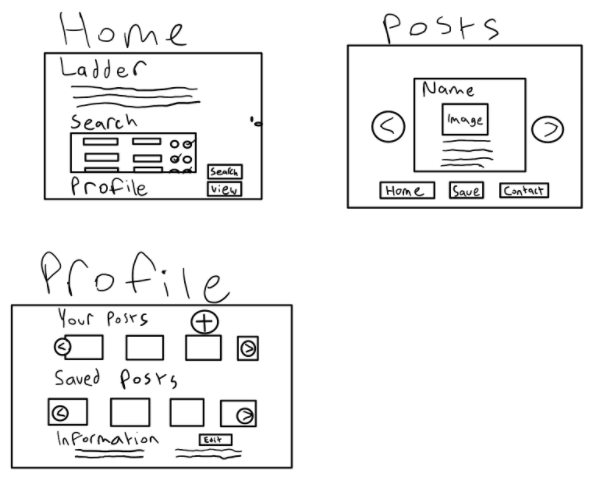 Home
Ladder
Search
Search
Profile
View
Posts
Name
Image
<
>
Home Save Contact
Profile
Your Posts +
< >
Saved Posts
< >
Information Edit